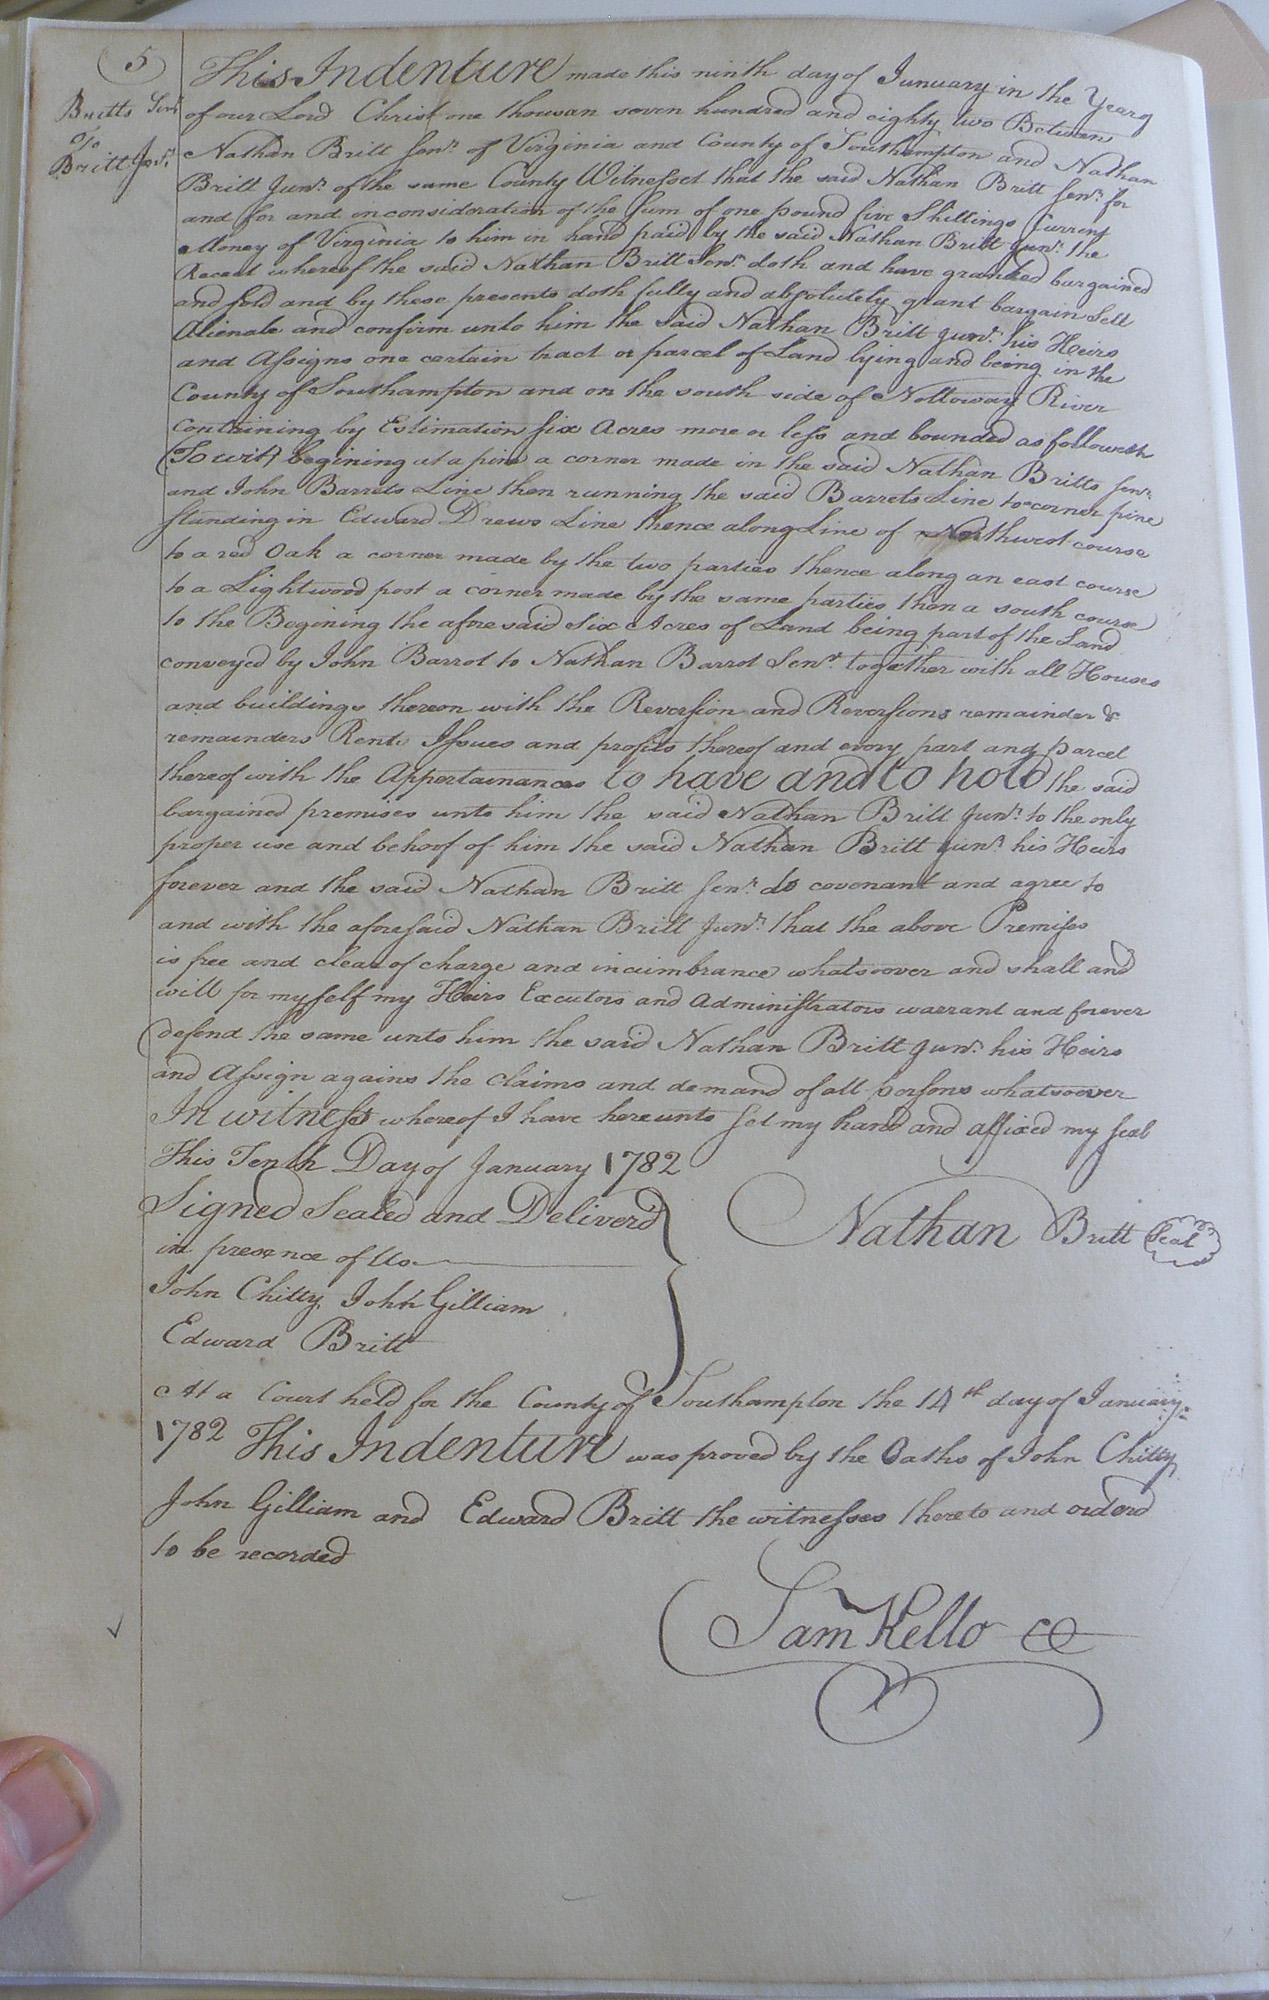 5
Britts Senr
To
Britt Jr.
This Indenture made this ninth day of January in the Year
of our Lord Christ one thousan seven hundred and eighty two Between
Nathan Britt Senr. of Virginia and County of Southampton and Nathan
Britt Junr. of the same County Witnesset that the said Nathan Britt Senr. for
and for and in consideration of the Sum of one pound five Shillings Current
Money of Virginia to him in hand paid by the said Nathan Britt Junr. the
Receet whereof the said Nathan Britt Senr. doth and have granted bargained
and sold and by these presents doth fully and absolutely grant bargain Sell
Alienate and confirm unto him the said Nathan Britt Junr. his Heirs
and Assigns one certain tract or parcel of Land lying and being in the
County of Southampton and on the south side of Nottoway River
Containing by Estimation six Acres more or less and bounded as followeth
(To wit) begining at a pine a corner made in the said Nathan Britts Senr.
and John Barrets Line then running the said Barrets Line to corner pine
standing in Edward Drews Line thence along Line of Northwest course
to a red Oak a corner made by the two parties thence along an east course
to a Lightwood post a corner made by the same parties then a south course
to the Begining the afore said Six Acres of Land being part of the Land
conveyed by John Barrot to Nathan Barrot Senr. together with all Houses
and buildings thereon with the Reversion and Reversions remainder &
remainders Rents Issues and profits thereof and every part and parcel
thereof with the Appertainances to have and to hold the said
bargained premises unto him the said Nathan Britt Junr. to the only
proper use and behoof of him the said Nathan Britt Junr. his Heirs
forever and the said Nathan Britt Senr. do covenant and agree to
and with the aforesaid Nathan Britt Junr. that the above Premises
is free and clear of charge and incimbrance whatsoever and shall and
will for myself my Heirs Executors and Administrators warrant and forever
defend the same unto him the said Nathan Britt Junr. his Heirs
and Assign agains the claims and demand of all persons whatsoever
In witness whereof I have hereunto set my hand and affixed my seal
This Tenth Day of January 1782
Signed Sealed and Deliverd
in presence of Us
Nathan Britt Seal
John Chitty John Gilliam
Edward Britt
At a Court held for the County of Southampton the 14th day of January
1782 This Indenture was proved by the Oaths of John Chitty
John Gilliam and Edward Britt the witnesses thereto and orderd
to be recorded
Sam Kello CC